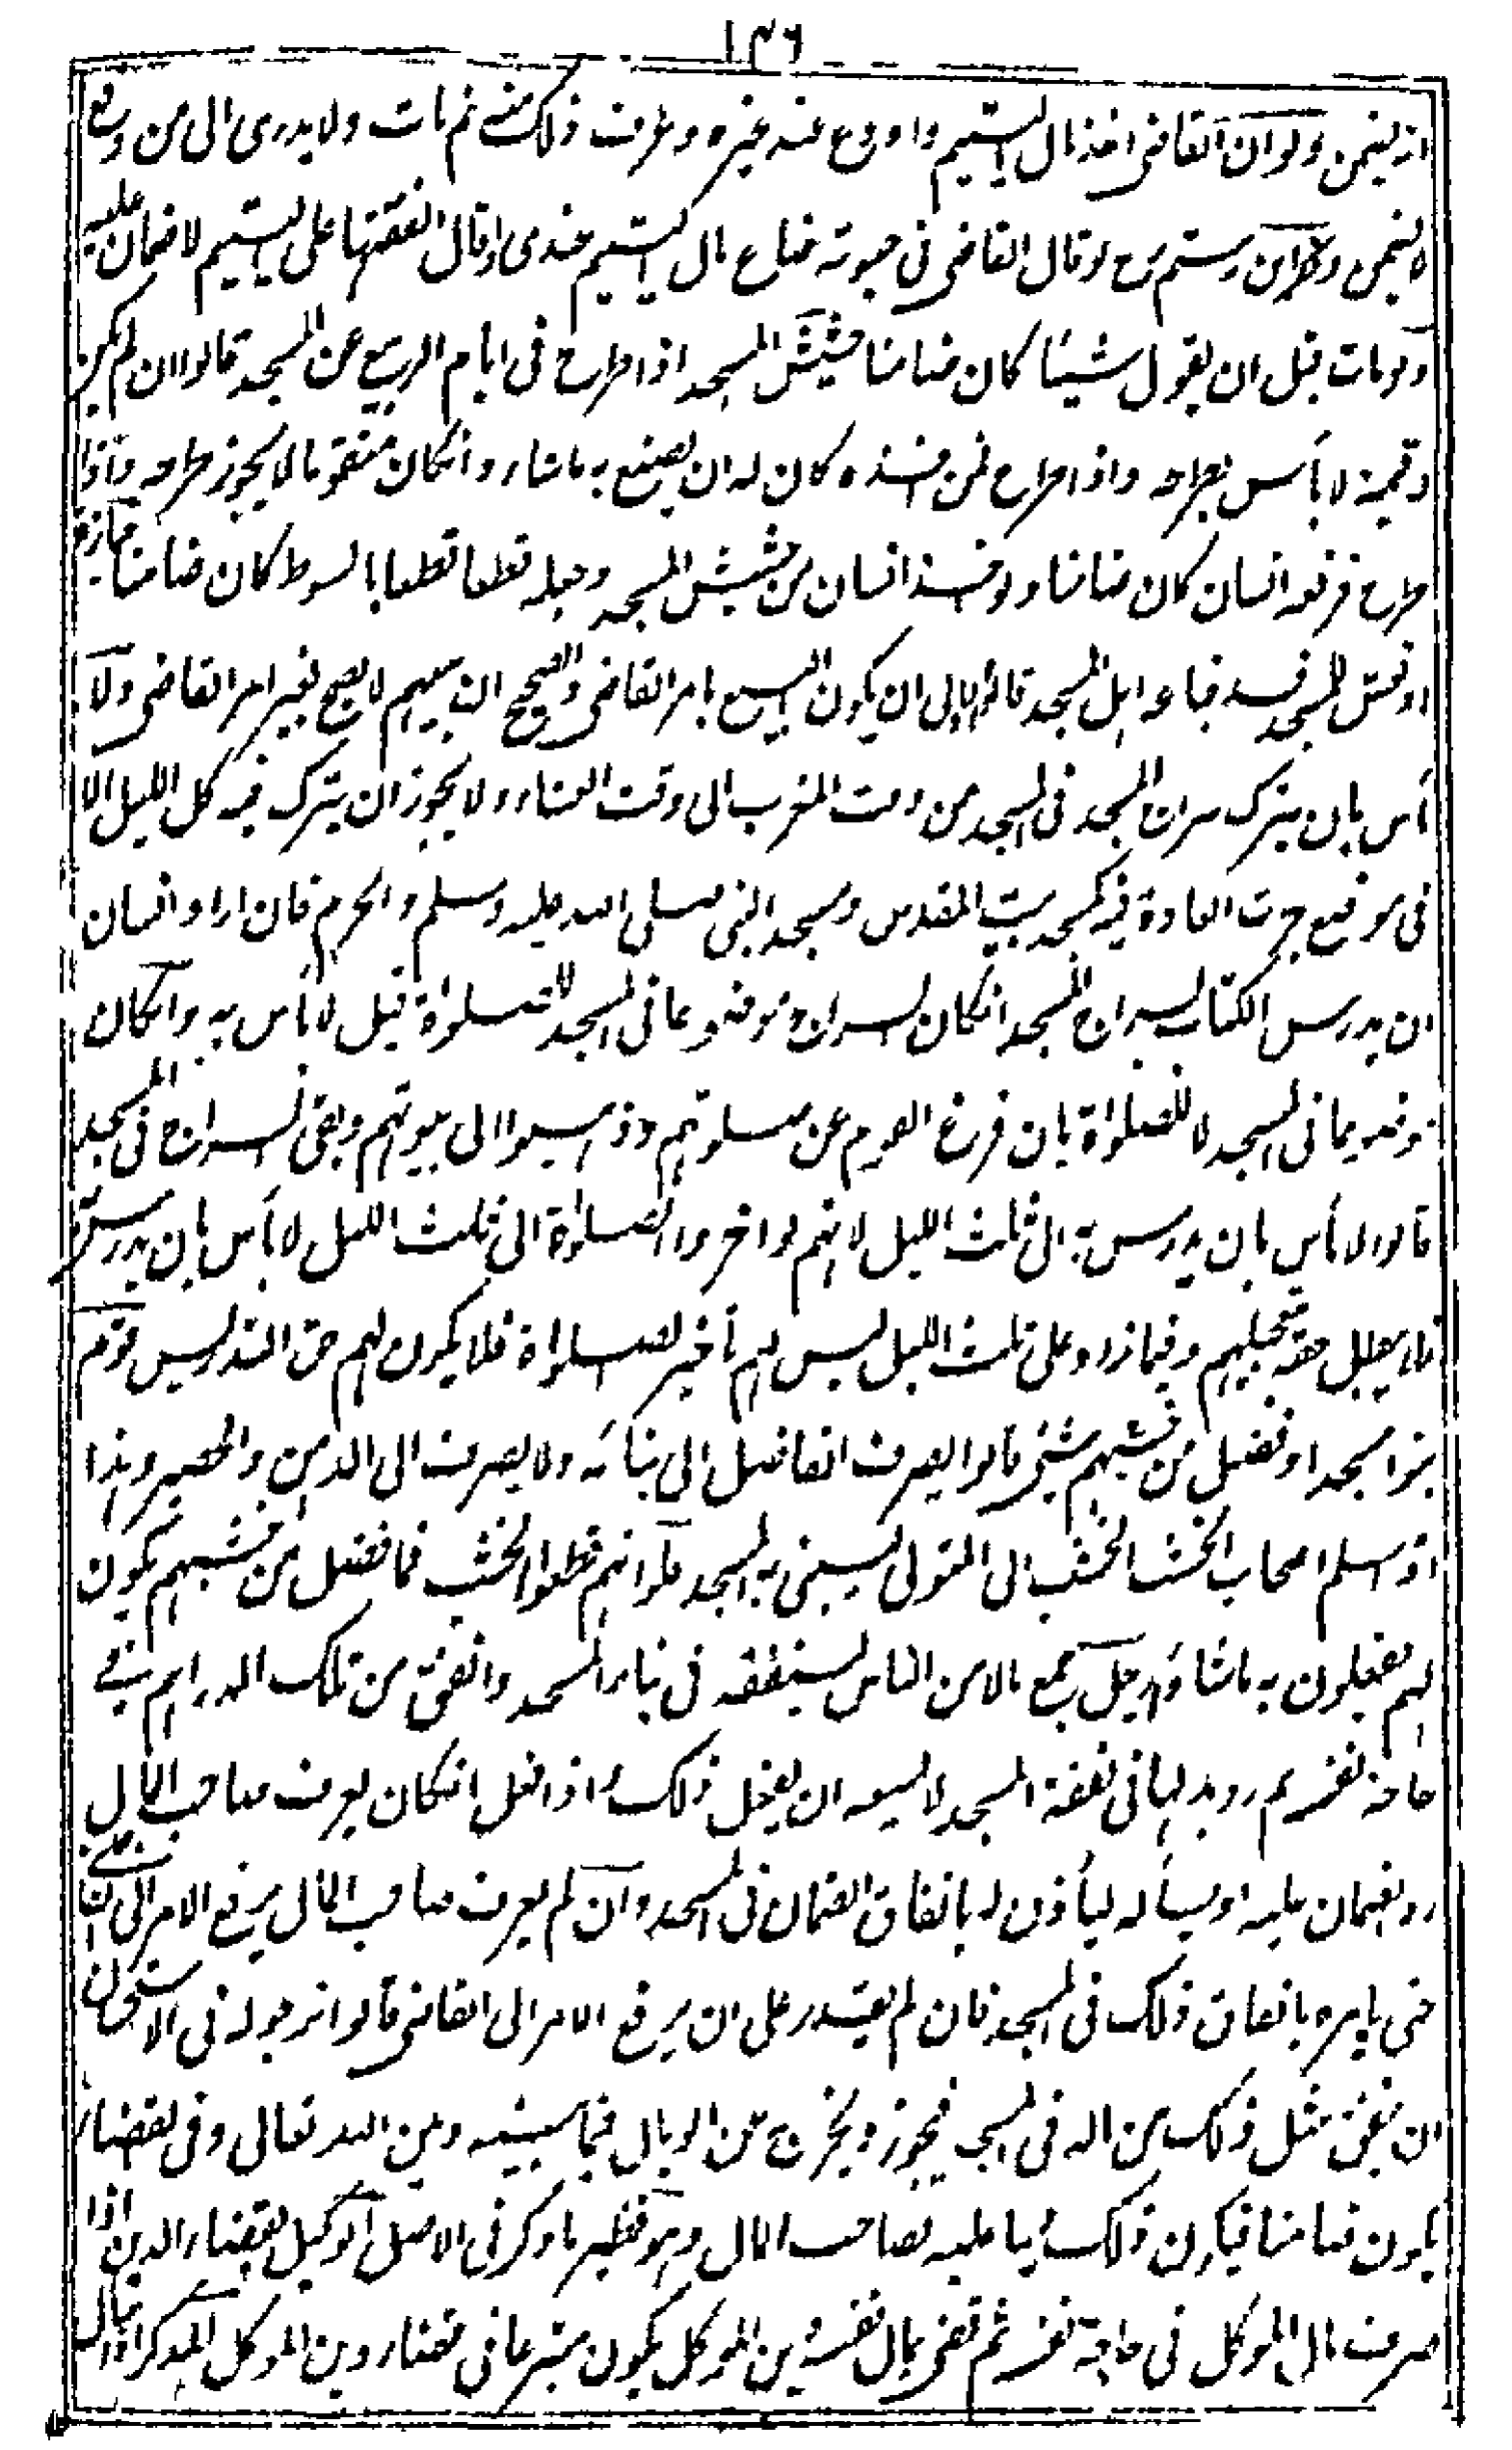 ١٣٦
انه يضمن ولو ان القاضى اخذ مال اليتيم واودع عند غيره وعرف ذلك منه ثم مات ولا يدرى الى من دفع
لا يضمن وذكر ابن رستم رح لو قال القاضى فى حيوته ضاع مال اليتيم عندى او قال انفقتها على اليتيم لا ضمان عليه
ولو مات قبل ان يقول شيئا كان ضامنا حشيش المسجد اذا طرح فى ايام الربيع عن المسجد قالوا ان لم يكن
له قيمة لا بأس بطرحه واذا طرح فمن اخذه كان له ان يصنع به ما شاء وانكان متقوما لا يجوز طرحه واذا
طرح فرفعه انسان كان ضامنا ولو اخذ انسان من حشيش المسجد وجعله قطعا قطعا بالسوط كان ضامنا جنازة
او نعش المسجد فسد فباعه اهل المسجد قالوا الاولى ان يكون البيع بامر القاضى والصحيح ان بيعهم لا يصح بغير امر القاضى ولا
بأس بان يترك سراج المسجد فى المسجد من وقت المغرب الى وقت العشاء ولا يجوز ان يترك فيه كل الليل الا
فى موضع جرت العادة فيه كمسجد بيت المقدس ومسجد النبى صلى الله عليه وسلم والحرم فان اراد انسان
ان يدرس الكتاب بسراج المسجد انكان السراج موضوعا فى المسجد للصلوٰة قيل لا بأس به وانكان
موضوعا فى المسجد لا للصلوٰة بان فرغ القوم عن صلوتهم وذهبوا الى بيوتهم وبقى السراج فى المسجد
قالوا لا بأس بان يدرس به الى ثلث الليل لانهم لو اخروا الصلوٰة الى ثلث الليل لا بأس بان يدرس به
فلا يبطل حقه بتعجيلهم وفيما زاد على ثلث الليل ليس لهم تأخير الصلوٰة فلا يكون لهم حق التدريس قوم
بنوا مسجدا وفضل من خشبهم شئ قالوا يصرف الفاضل الى بنائه ولا يصرف الى الدهن والحصير وهذا
اذا سلم اصحاب الخشب الخشب الى المتولى ليبنى به المسجد فلو انهم قطعوا الخشب فما فضل من خشبهم يكون
لهم يفعلون به ما شاؤا رجل جمع مالا من الناس لينفقه فى بناء المسجد وانفق من تلك الدراهم فى
حاجة نفسه ثم رد بدلها فى نفقة المسجد لا يسعه ان يفعل ذلك واذا فعل انكان يعرف صاحب المال
رد الضمان عليه او يسأله ليأذن له بانفاق الضمان فى المسجد وان لم يعرف صاحب المال يرفع الامر الى القاضى
حتى يامره بانفاق ذلك فى المسجد فان لم يقدر على ان يرفع الامر الى القاضى قالوا نرجو له فى الاستحسان
ان ينفق مثل ذلك من ماله فى المسجد فيجوز ويخرج عن الوبال فيما بينه وبين الله تعالى وفى القضاء
يكون ضامنا فيكون ذلك دينا عليه لصاحب المال وهو نظير ما ذكر فى الاصل الوكيل بقضاء الدين اذا
صرف مال الموكل فى حاجة نفسه ثم قضى بمال نفسه دين الموكل يكون متبرعا فى قضاء دين الموكل المذكر اذا سأل